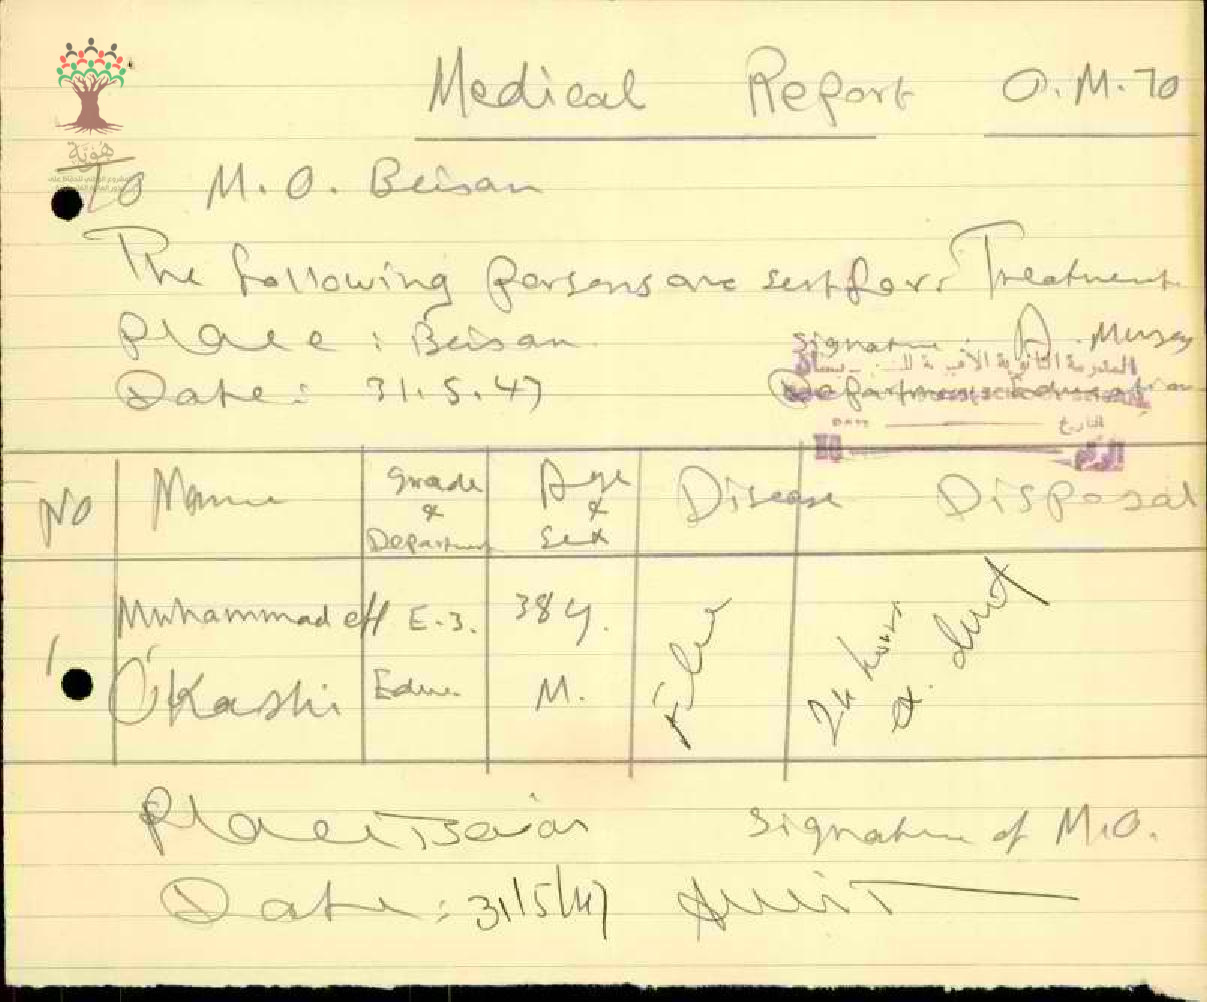 Medical Report O.M.70
هَويّة
To M.O. Beisan
The following persons are sent for Treatment
Place : Beisan
Signature : A. Musa
المدرسة الثانوية الأميرية بيسان
Date : 31.5.47
Department Education
DATE التاريخ
NO الرقم
No Name Grade & Department Age & Sex Disease Disposal
1 Muhammad eff E.3. 38 y. Fever 24 hours
O'Kashi Educ. M. duty
Place : Beisan Signature of M.O.
Date : 31/5/47